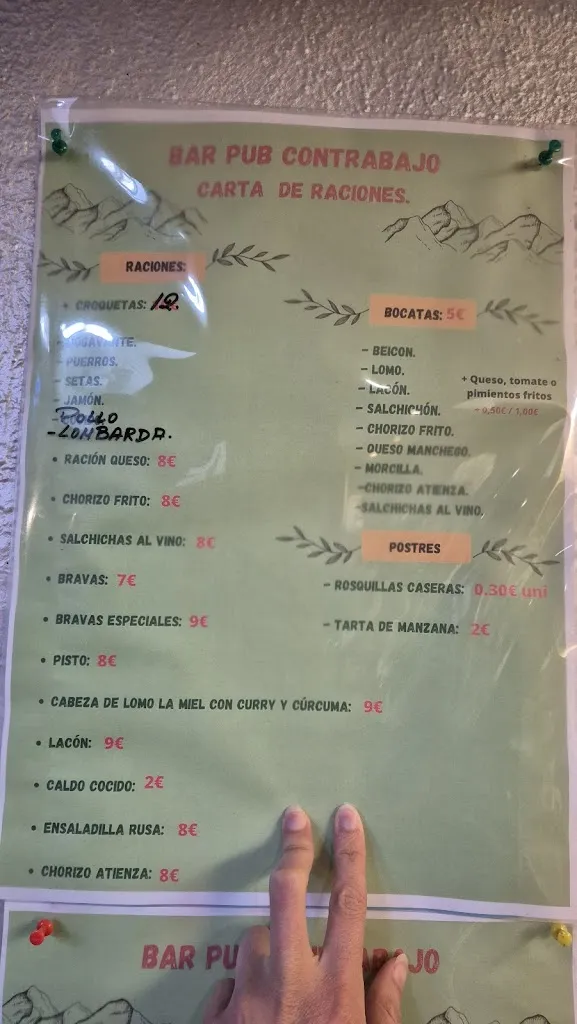 BAR PUB CONTRABAJO
CARTA DE RACIONES.
RACIONES:
+ CROQUETAS:
- BOGAVANTE.
- PUERROS.
- SETAS.
- JAMÓN.
POLLO
-LOMBARDA.
• RACIÓN QUESO: 8€
• CHORIZO FRITO: 8€
• SALCHICHAS AL VINO: 8€
• BRAVAS: 7€
• BRAVAS ESPECIALES: 9€
• PISTO: 8€
• CABEZA DE LOMO LA MIEL CON CURRY Y CÚRCUMA: 9€
• LACÓN: 9€
• CALDO COCIDO: 2€
• ENSALADILLA RUSA: 8€
• CHORIZO ATIENZA: 8€
BOCATAS: 5€
- BEICON.
- LOMO.
- LACÓN.
- SALCHICHÓN.
- CHORIZO FRITO.
- QUESO MANCHEGO.
- MORCILLA.
-CHORIZO ATIENZA.
-SALCHICHAS AL VINO.
+ Queso, tomate o
pimientos fritos
+ 0,50€ / 1,00€
POSTRES
- ROSQUILLAS CASERAS: 0.30€ uni
- TARTA DE MANZANA: 2€
BAR